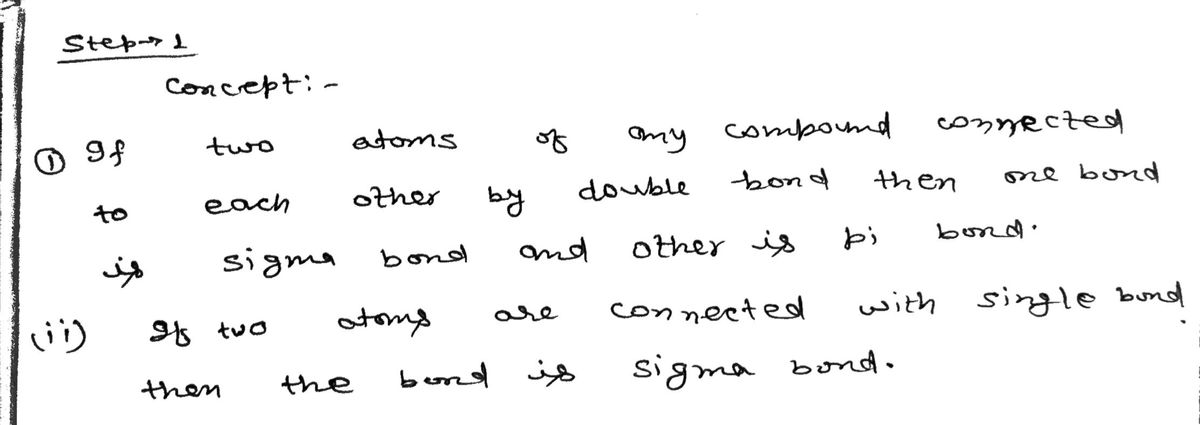 Step→ 1
Concept:-
① If two atoms of any compound connected
to each other by double bond then one bond
is sigma bond and other is pi bond.
(ii) If two atoms are connected with single bond
then the bond is sigma bond.